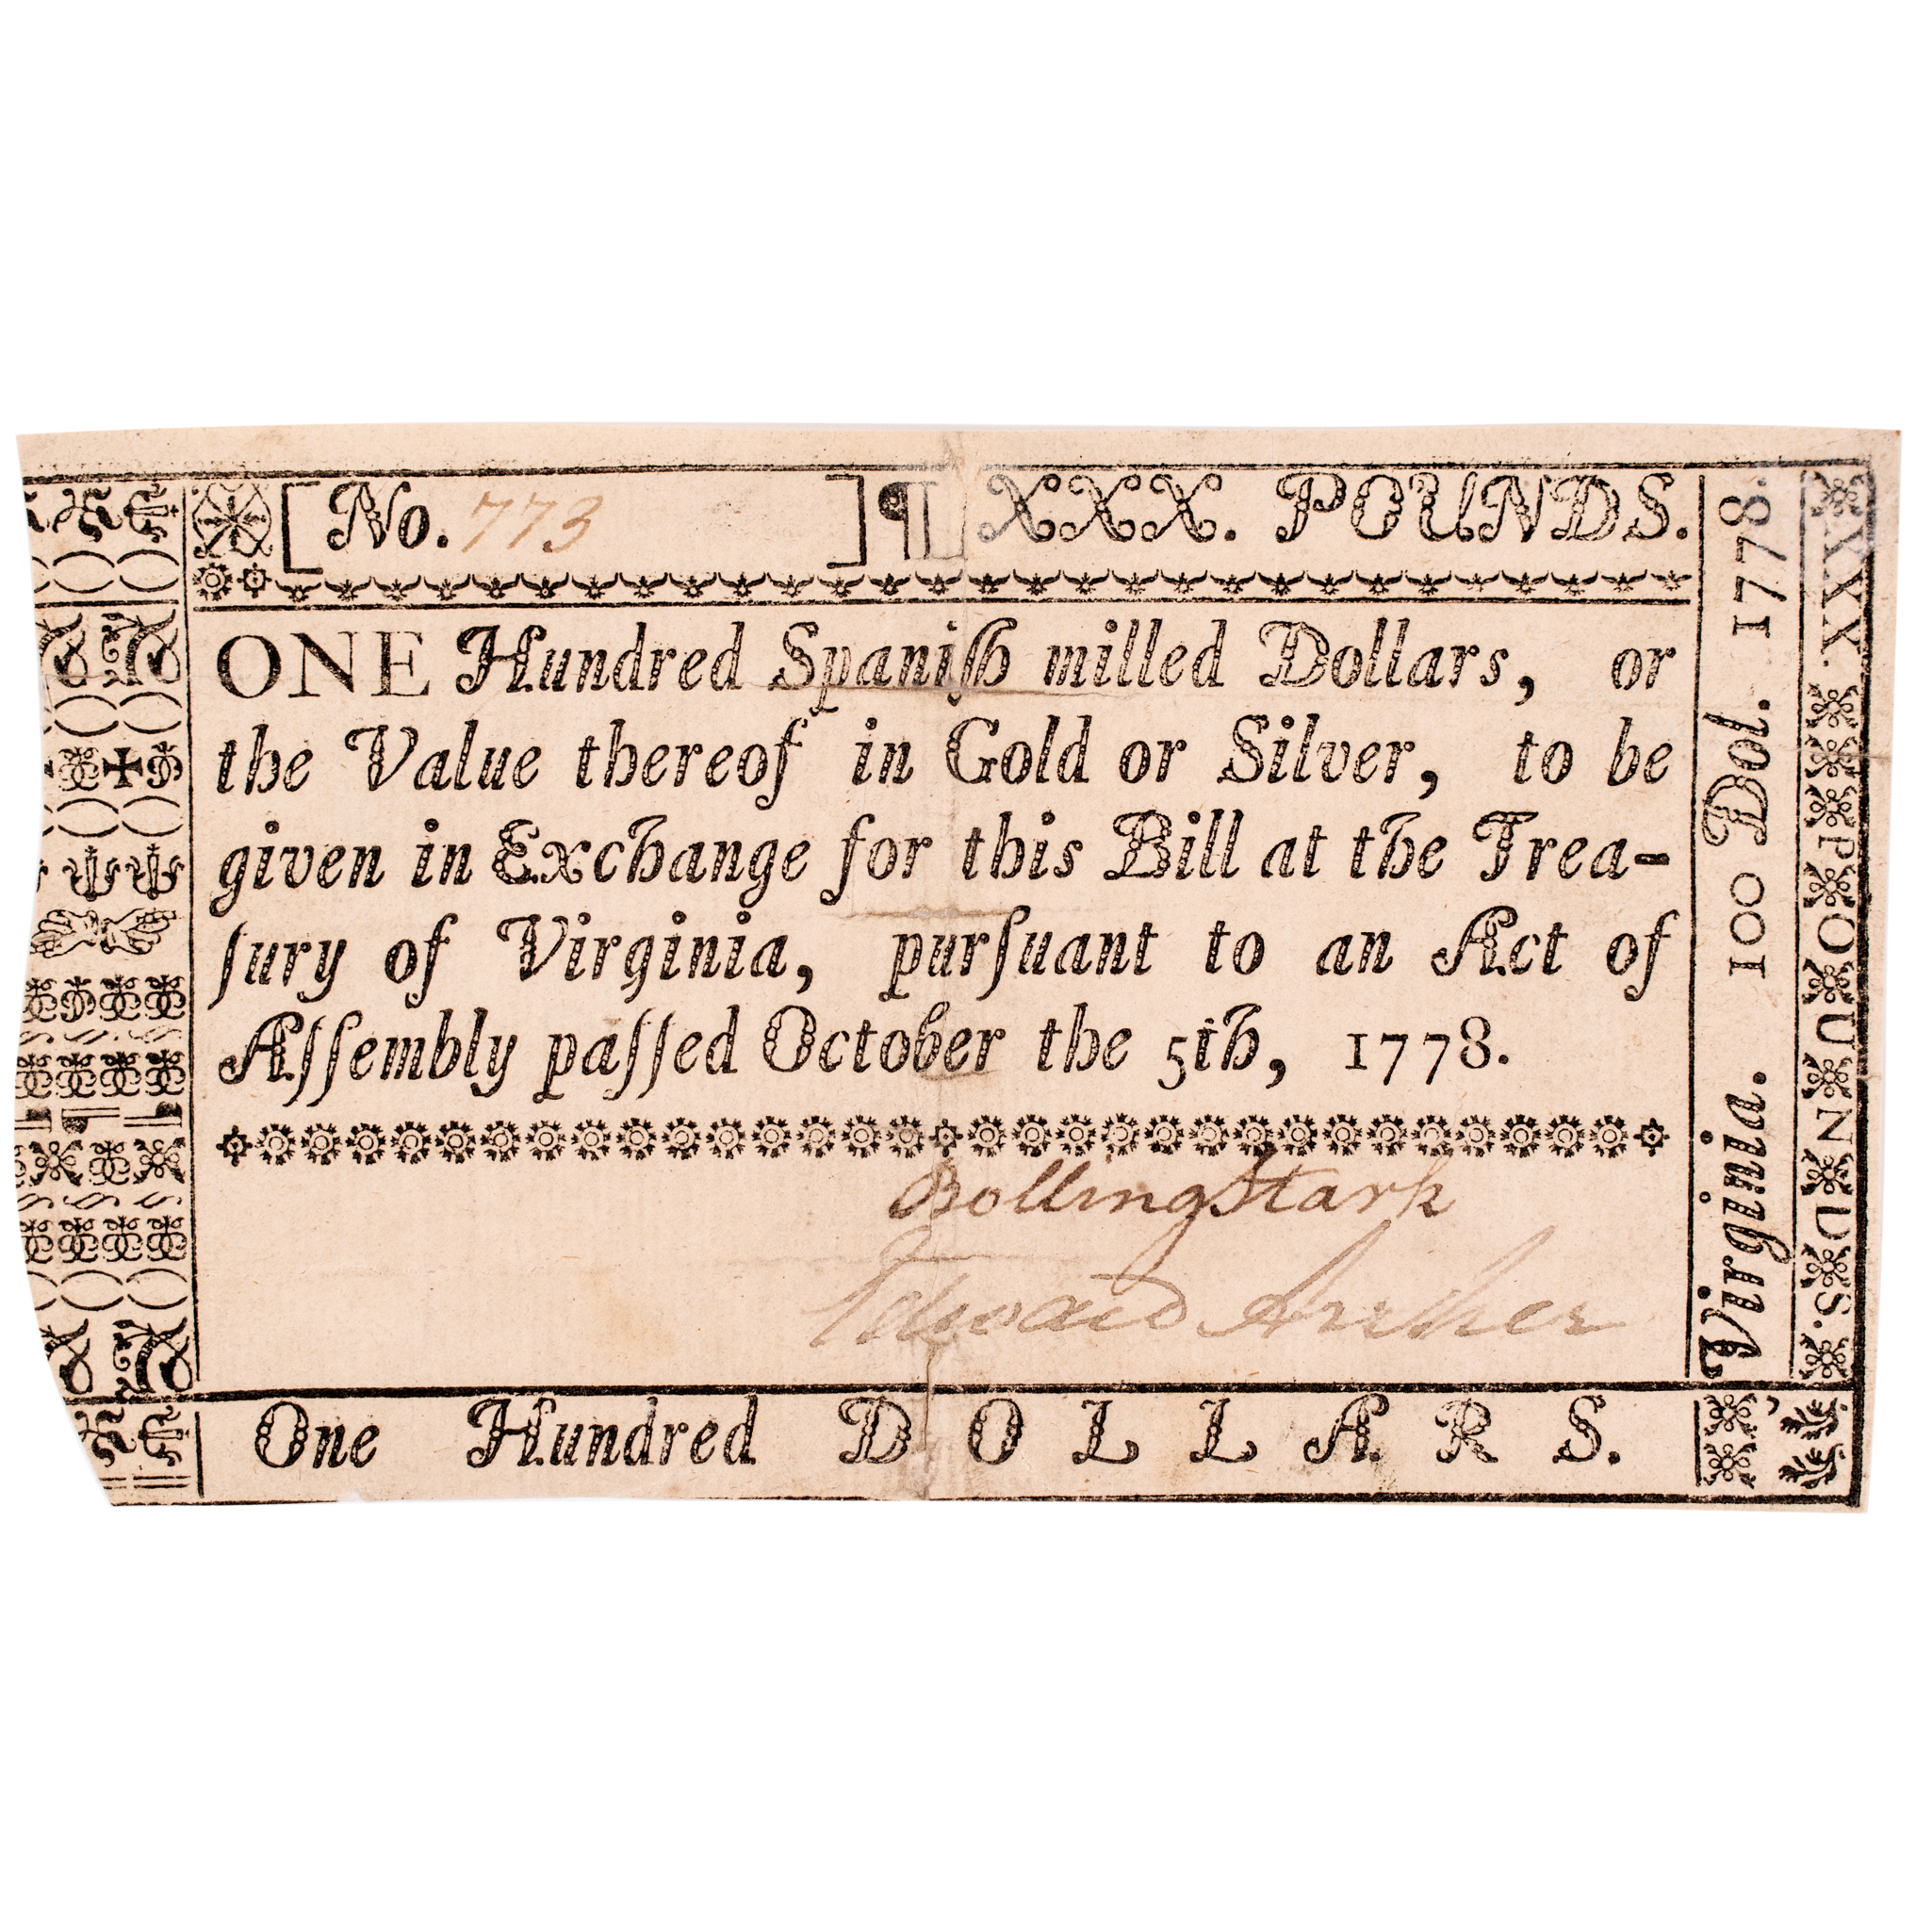 [ No. 773 ] ¶ XXX. POUNDS.
ONE Hundred Spaniſh milled Dollars, or
the Value thereof in Gold or Silver, to be
given in Exchange for this Bill at the Trea-
ſury of Virginia, purſuant to an Act of
Aſſembly paſſed October the 5th, 1778.
Bolling Stark
Edward Archer
One Hundred DOLLARS.
Virginia. 100 Dol. 1778.
XXX. POUNDS.